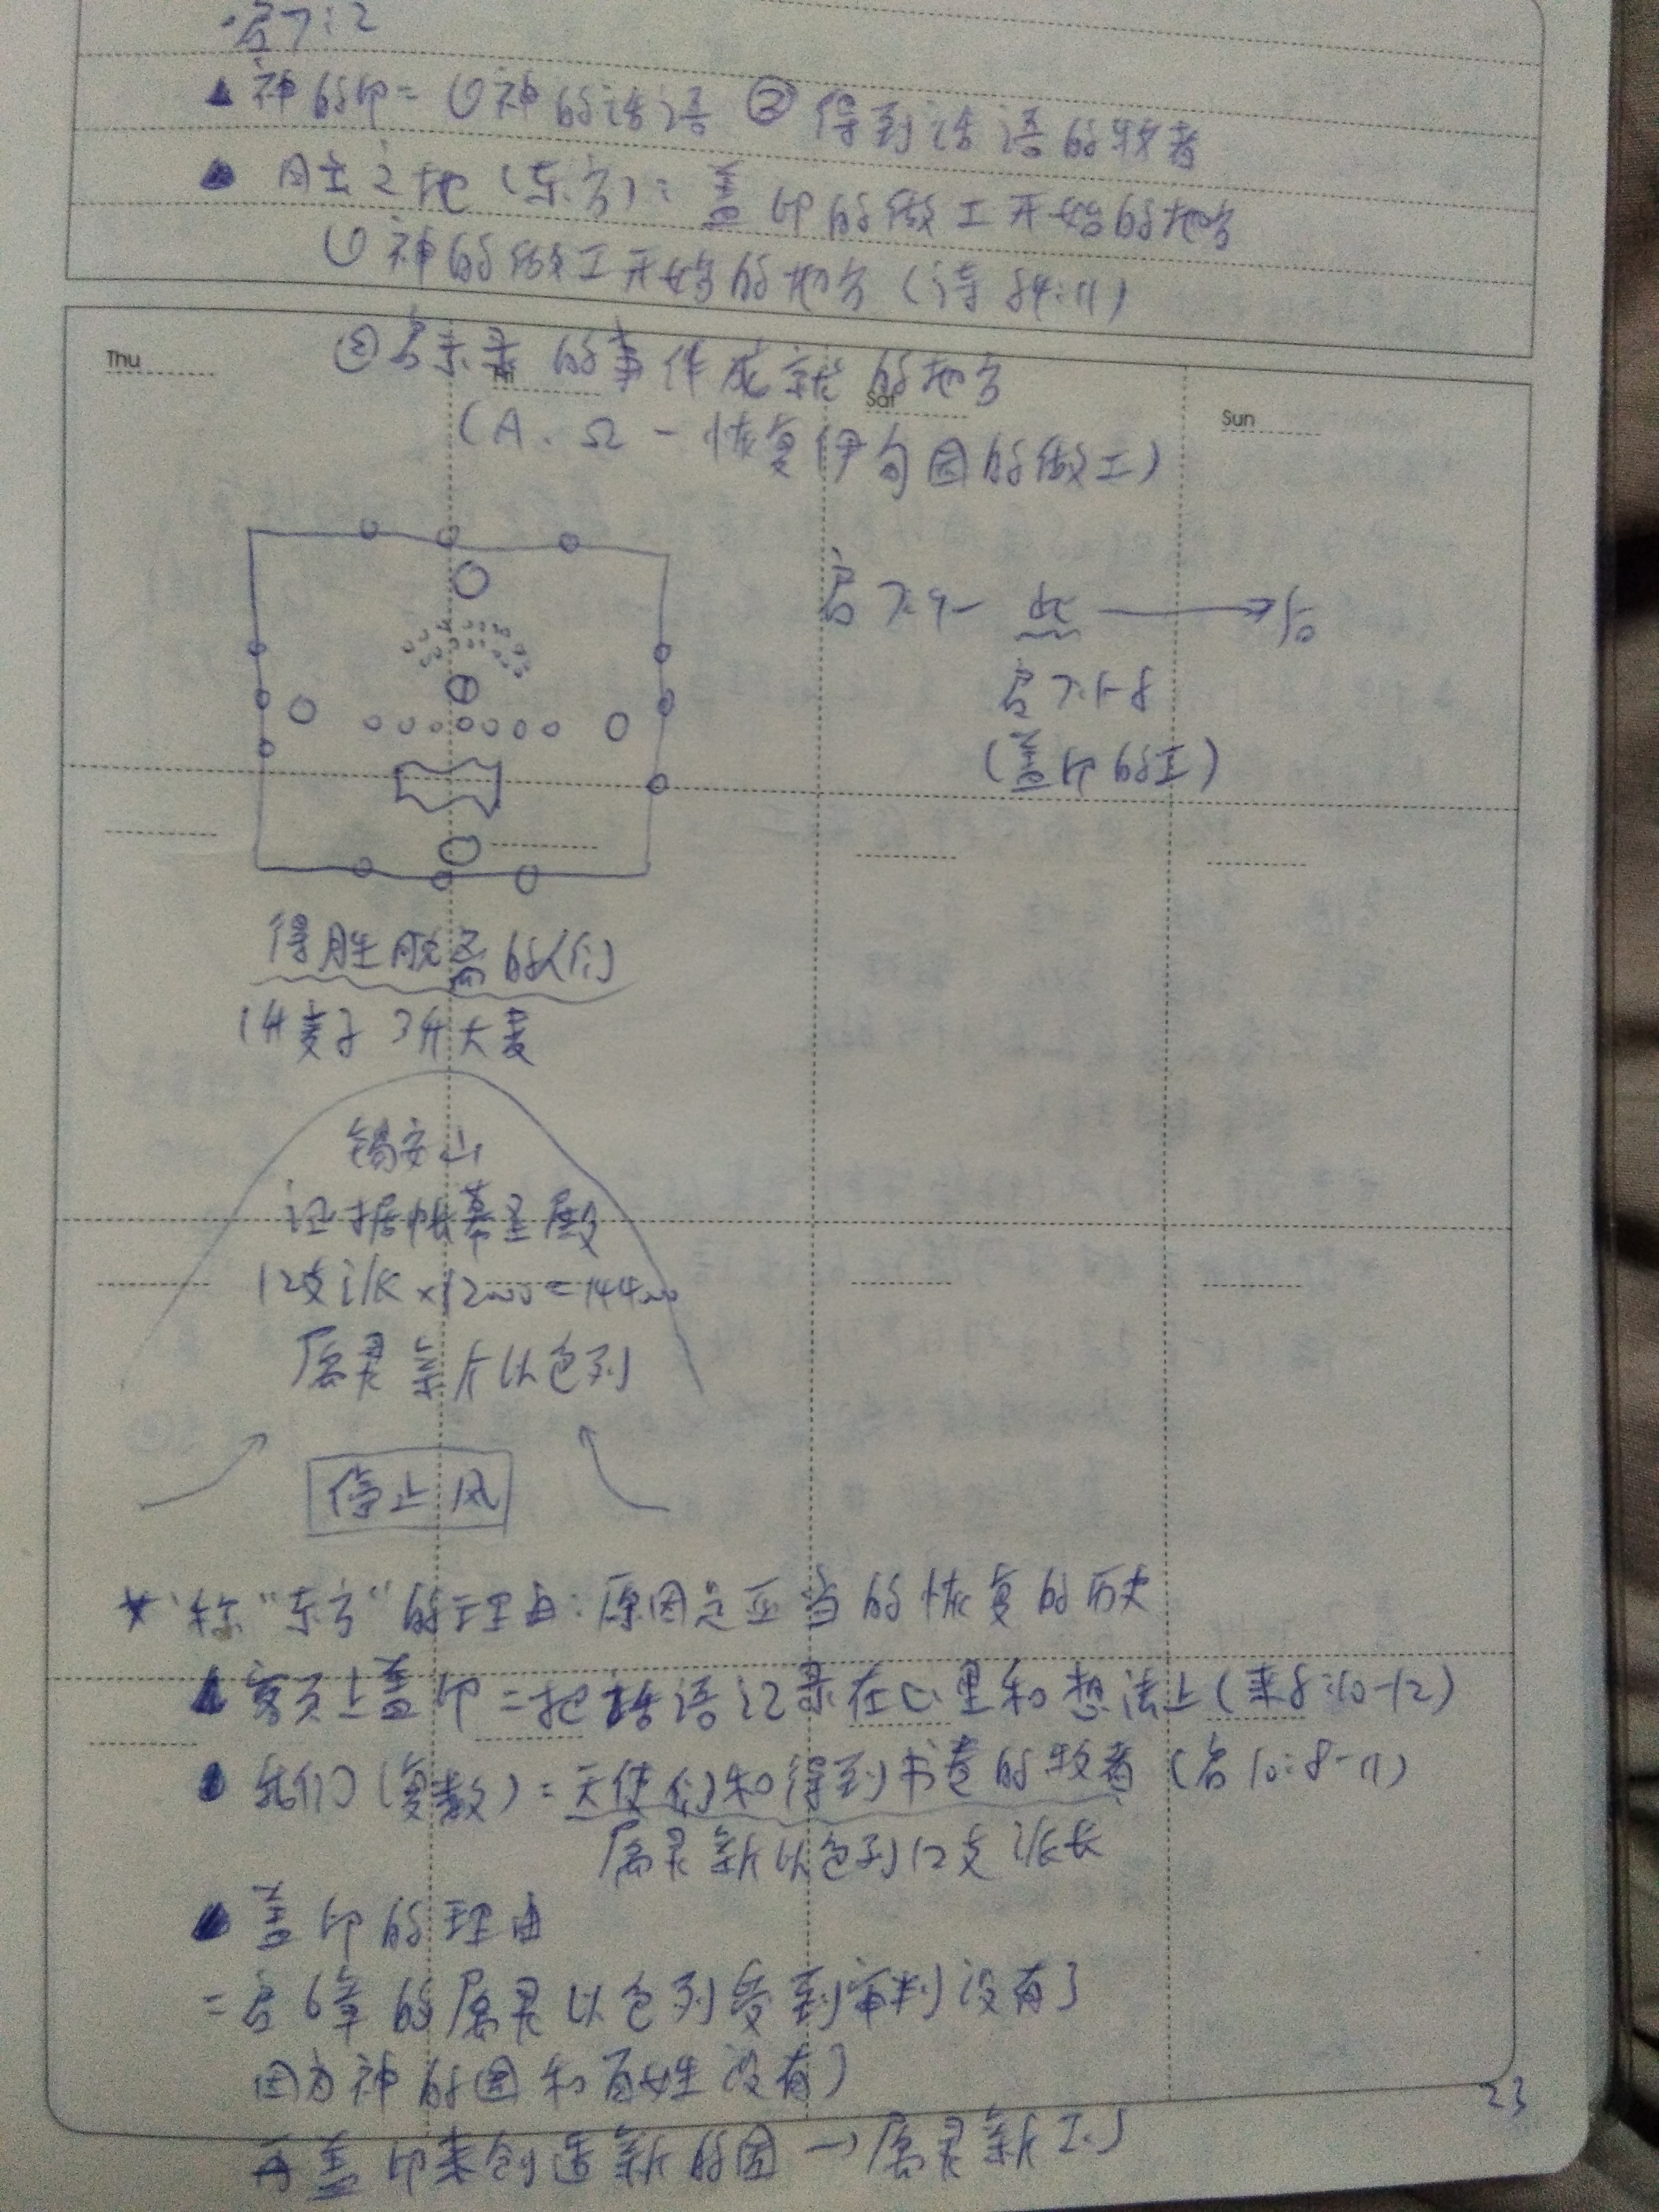 ·启7:2
神的印=①神的话语 ②得到话语的牧者
日出之地(东方):盖印的做工开始的地方
①神的做工开始的地方(诗84:11)
Thu
②启示录的事件成就的地方
Fri
Sat
Sun
(A、Ω-恢复伊甸园的做工)
启7:9-
启7:1-8
(盖印的工)
得胜脱离的人们
1升麦子 3升大麦
锡安山
证据帐幕圣殿
12支派×12000=144000
属灵新以色列
停止风
*称"东方"的理由:原因是正当的恢复的历史
额头上盖印=把话语记录在心里和想法上(来8:10-12)
我们(复数)=天使们和得到书卷的牧者(启10:8-11)
属灵新以色列12支派长
盖印的理由
=启6章的属灵以色列受到审判没有了
因为神的国和百姓没有了
再盖印来创造新的国→属灵新
23